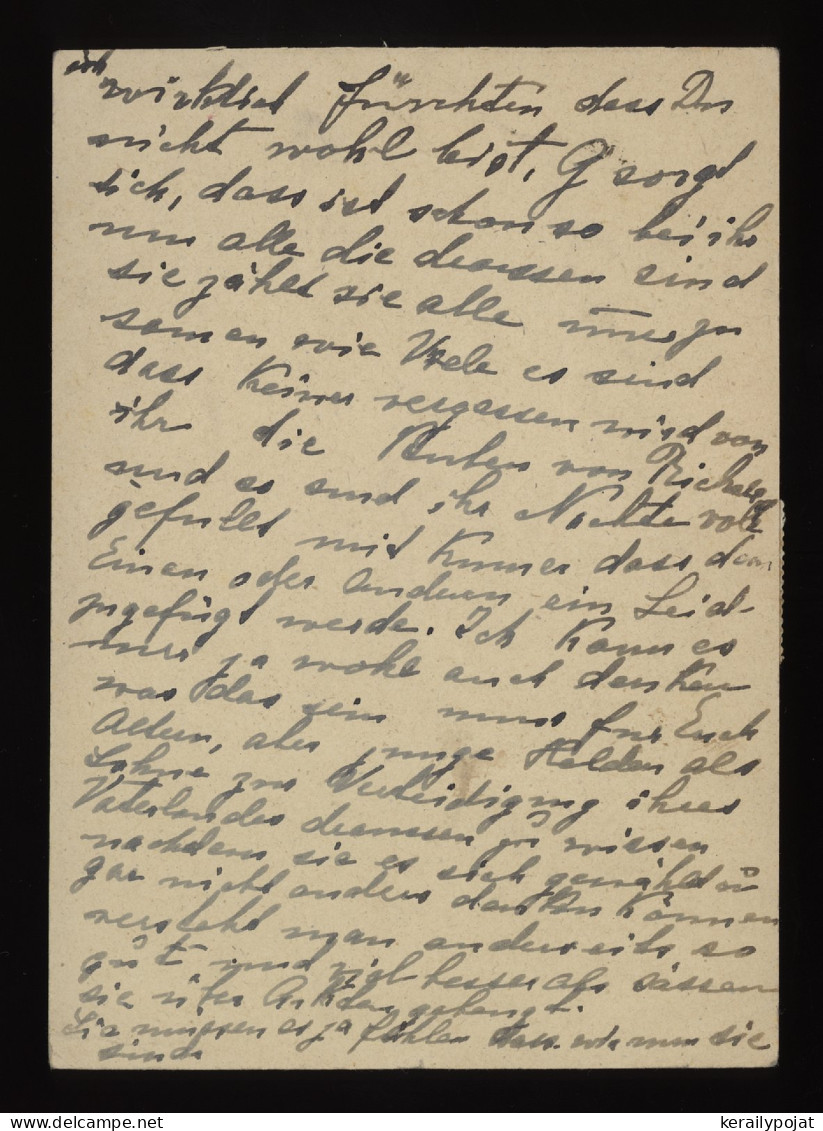 ich
wirklich fürchten dass Du
nicht wohl bist, G sorgt
sich, dass ist schon so bei ihr
um alle die draussen sind
sie zählt sie alle immer zu
samen wie Viele es sind
dass Keiner vergessen wird von
ihr die Buben von Richard
und es sind ihr Nächte voll
gefüllt mit Kumer dass dem
Einen oder Andern ein Leid
zugefügt werde. Ich Kann es
mir ja wohl auch denken
was das sein muss für Euch
Alten, aber junge Helden als
Söhne zur Verteidigung ihres
Vaterlandes draussen zu wissen
nachdem sie es sich gewählt u
gar nicht anders denken Können
versteht man anderseits so
gut und viel besser als sässen
sie über Akten gebeugt.
Sie müssen es ja fühlen dass wir um sie
sind
kerailypojat
delcampe.net